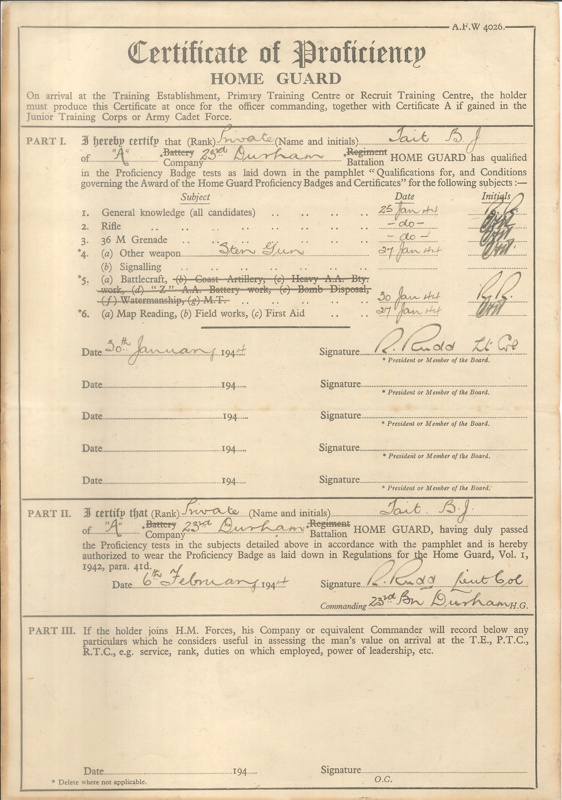 A.F.W 4026.
Certificate of Proficiency
HOME GUARD
On arrival at the Training Establishment, Primary Training Centre or Recruit Training Centre, the holder
must produce this Certificate at once for the officer commanding, together with Certificate A if gained in the
Junior Training Corps or Army Cadet Force.
PART I. I hereby certify that (Rank) Private (Name and initials) Tait B J
of "A" *Battery Company 23rd Durham *Regiment Battalion HOME GUARD has qualified
in the Proficiency Badge tests as laid down in the pamphlet "Qualifications for, and Conditions
governing the Award of the Home Guard Proficiency Badges and Certificates" for the following subjects :—
Subject Date Initials
1. General knowledge (all candidates) .. .. .. .. 25 Jan 44
2. Rifle .. .. .. .. .. .. - do -
3. 36 M Grenade .. .. .. .. .. - do -
*4. (a) Other weapon Sten Gun .. .. 27 Jan 44
(b) Signalling .. .. .. .. ..
*5. (a) Battlecraft, (b) Coast Artillery, (c) Heavy A.A. Bty.
work, (d) "Z" A.A. Battery work, (e) Bomb Disposal,
(f) Watermanship, (g) M.T. .. .. .. .. 30 Jan 44 R.R.
*6. (a) Map Reading, (b) Field works, (c) First Aid .. .. 27 Jan 44
Date 30th January 1944 Signature R. Rudd Lt Col
* President or Member of the Board.
Date 194 Signature
* President or Member of the Board.
Date 194 Signature
* President or Member of the Board.
Date 194 Signature
* President or Member of the Board.
Date 194 Signature
* President or Member of the Board.
PART II. I certify that (Rank) Private (Name and initials) Tait. B.J.
of "A" *Battery Company 23rd Durham *Regiment Battalion HOME GUARD, having duly passed
the Proficiency tests in the subjects detailed above in accordance with the pamphlet and is hereby
authorized to wear the Proficiency Badge as laid down in Regulations for the Home Guard, Vol. 1,
1942, para. 41d.
Date 6th February 1944 Signature R. Rudd Lieut Col
Commanding 23rd Bn Durham H.G.
PART III. If the holder joins H.M. Forces, his Company or equivalent Commander will record below any
particulars which he considers useful in assessing the man's value on arrival at the T.E., P.T.C.,
R.T.C., e.g. service, rank, duties on which employed, power of leadership, etc.
Date 194 Signature
* Delete where not applicable. O.C.